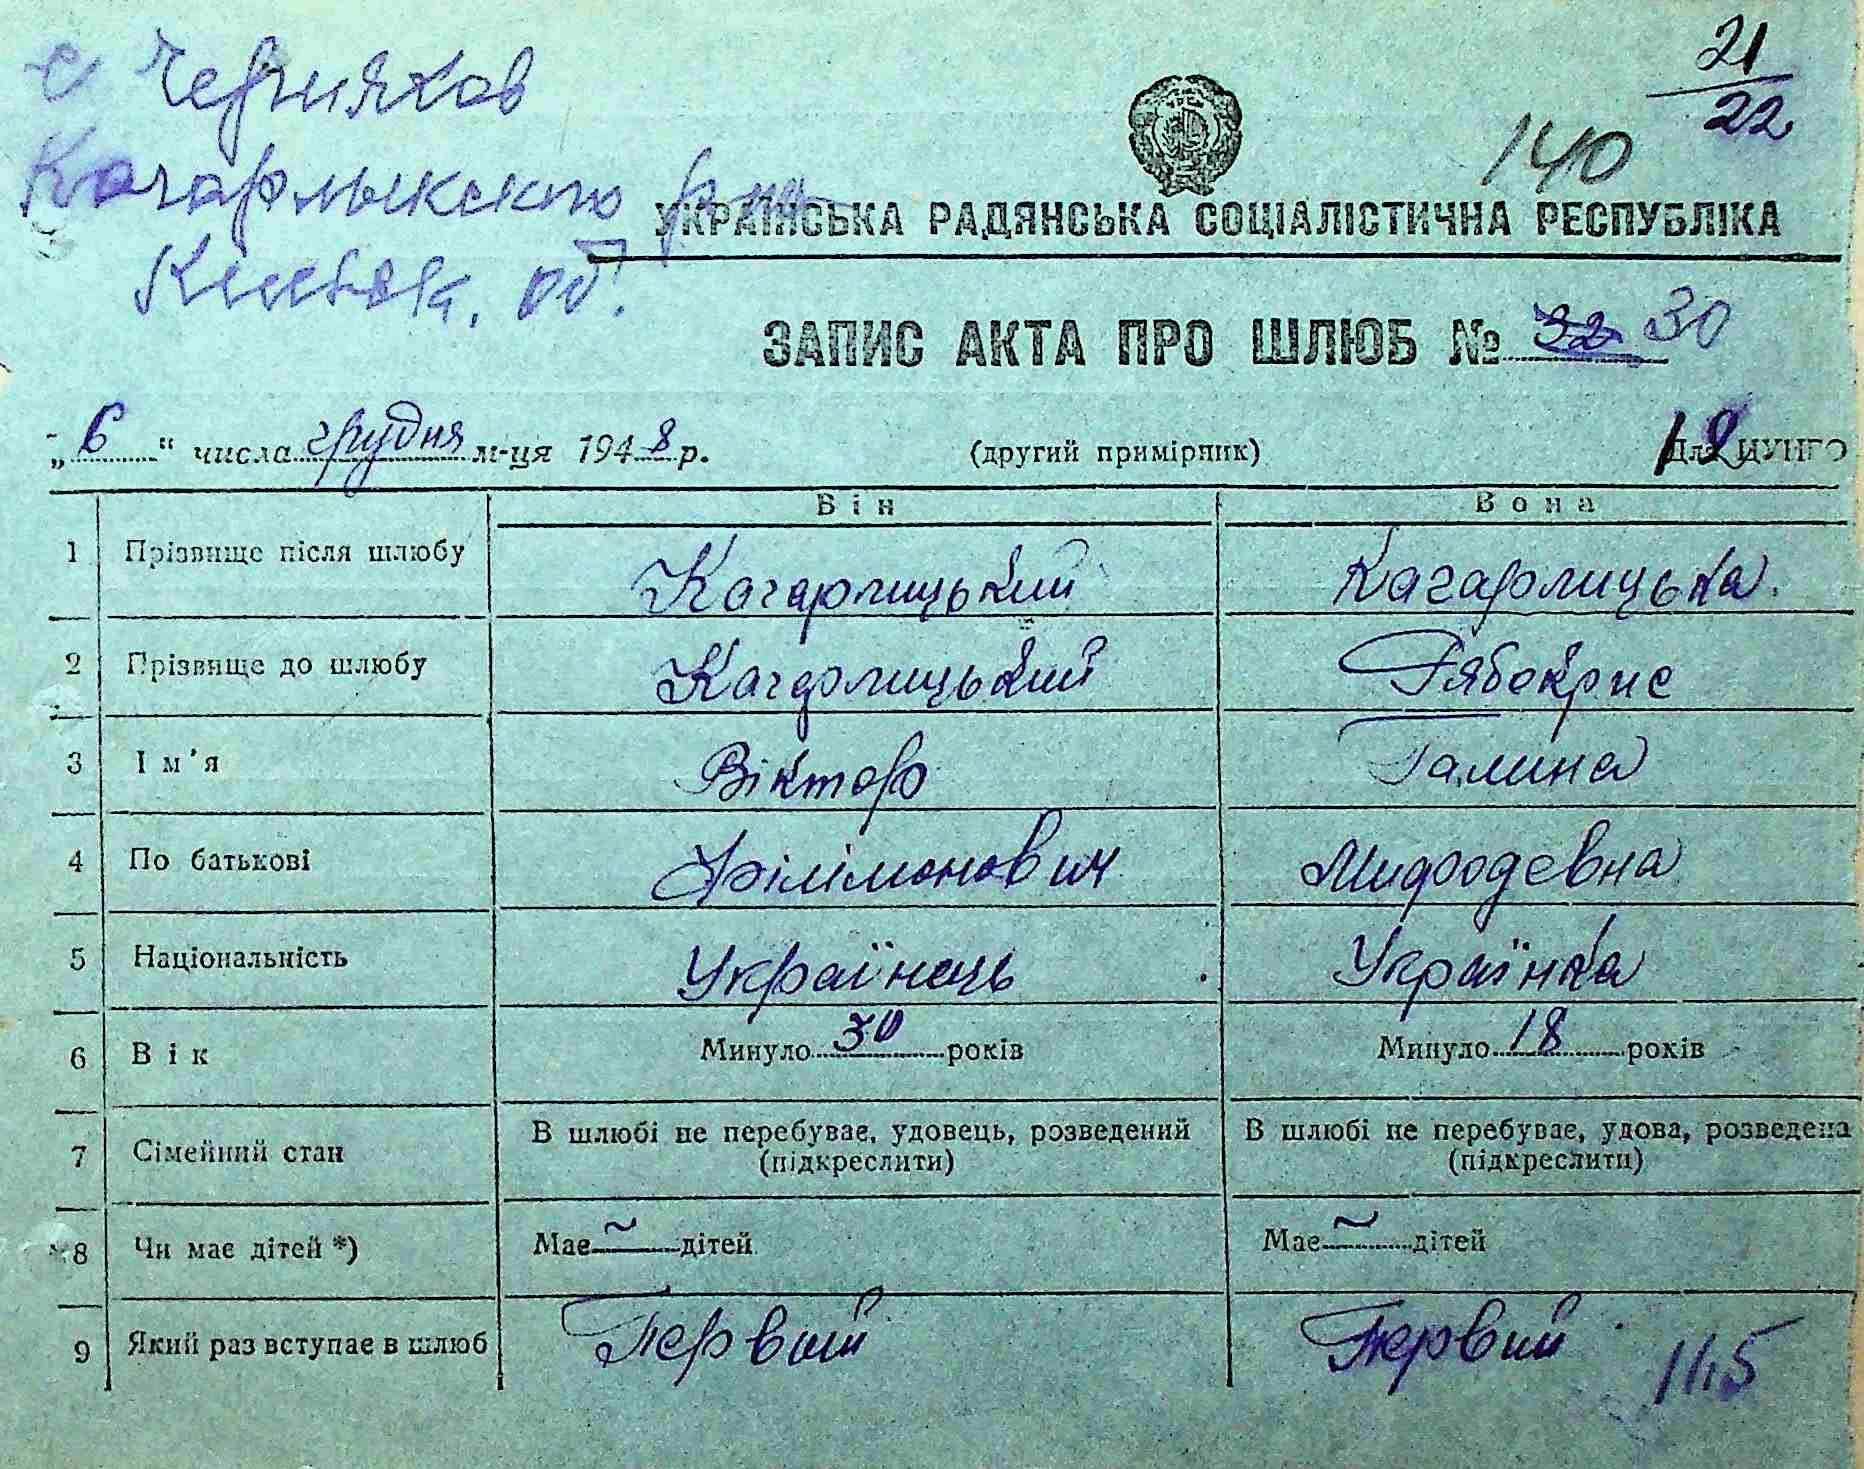 21
22
с Черняхов
140
Кагарлыкского р-на
УКРАЇНСЬКА РАДЯНСЬКА СОЦІАЛІСТИЧНА РЕСПУБЛІКА
Киевск. об.
ЗАПИС АКТА ПРО ШЛЮБ № 32 30
„6“ числа грудня м-ця 1948 р. (другий примірник) Для ЦУНГО
12
Він Вона
1 Прізвище після шлюбу Кагарлицький Кагарлицька
2 Прізвище до шлюбу Кагарлицький Рябокрис
3 Ім'я Віктор Галина
4 По батькові Філімонович Мифодевна
5 Національність Українець Українка
6 Вік Минуло 30 років Минуло 18 років
7 Сімейний стан В шлюбі не перебуває, удовець, розведений (підкреслити) В шлюбі не перебуває, удова, розведена (підкреслити)
8 Чи має дітей *) Має ~ дітей Має ~ дітей
9 Який раз вступає в шлюб Первий Первий
115